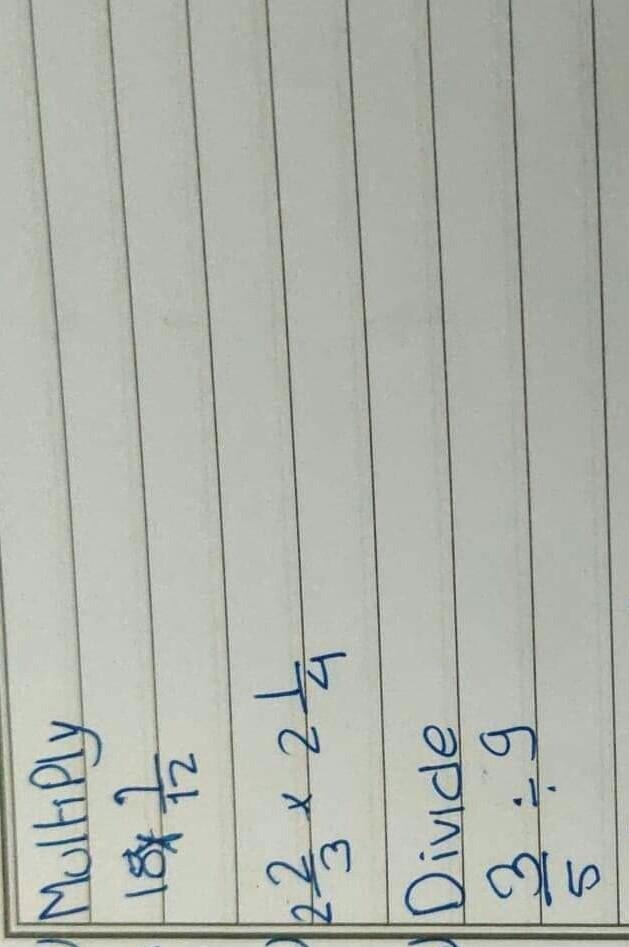 Multiply
18 × 7/12
2 2/3 × 2 1/4
Divide
3/5 ÷ 9